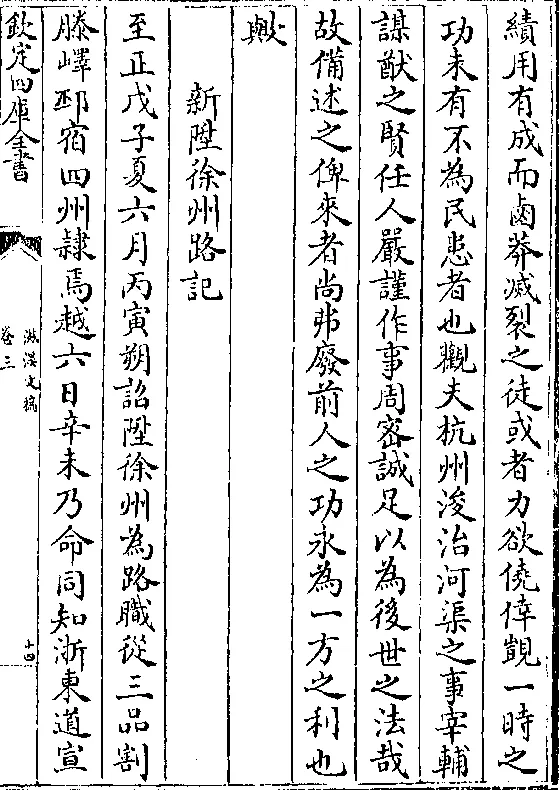 績用有成而鹵莽滅裂之徒或者力欲僥倖覬一時之
功未有不為民患者也觀夫杭州浚治河渠之事宰輔
謀猷之賢任人嚴謹作事周密誠足以為後世之法哉
故備述之俾來者尚弗廢前人之功永為一方之利也
歟
新陞徐州路記
至正戊子夏六月丙寅朔詔陞徐州為路職從三品割
滕嶧邳宿四州隸焉越六日辛未乃命同知浙東道宣
欽定四庫全書
滋溪文稿
卷三
十四